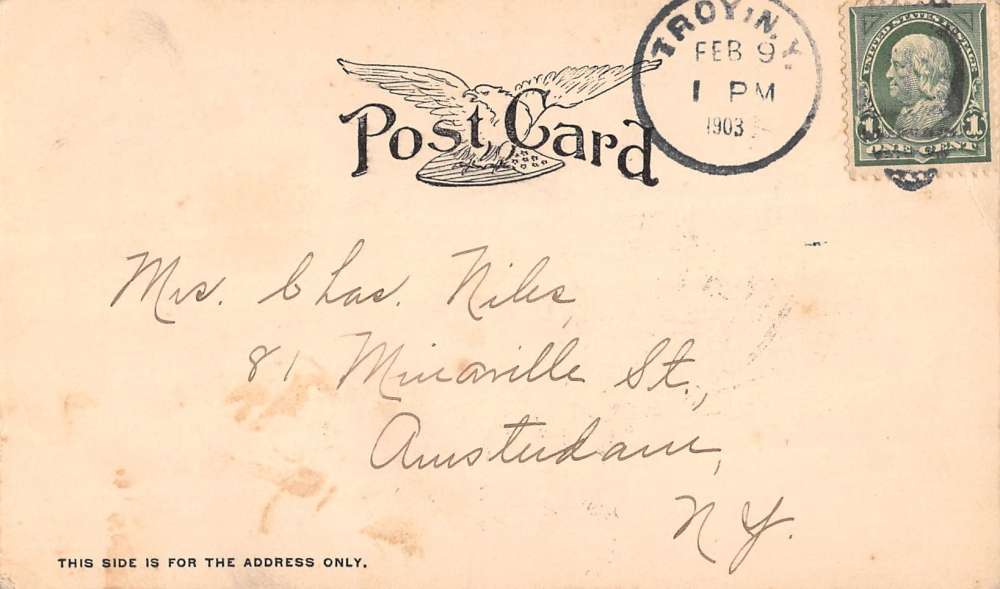 TROY, N.Y.
FEB 9
1 PM
1903
UNITED STATES POSTAGE
1 1
ONE CENT
Post Card
Mrs. Chas. Niles,
81 Minaville St.,
Amsterdam,
N.Y.
THIS SIDE IS FOR THE ADDRESS ONLY.